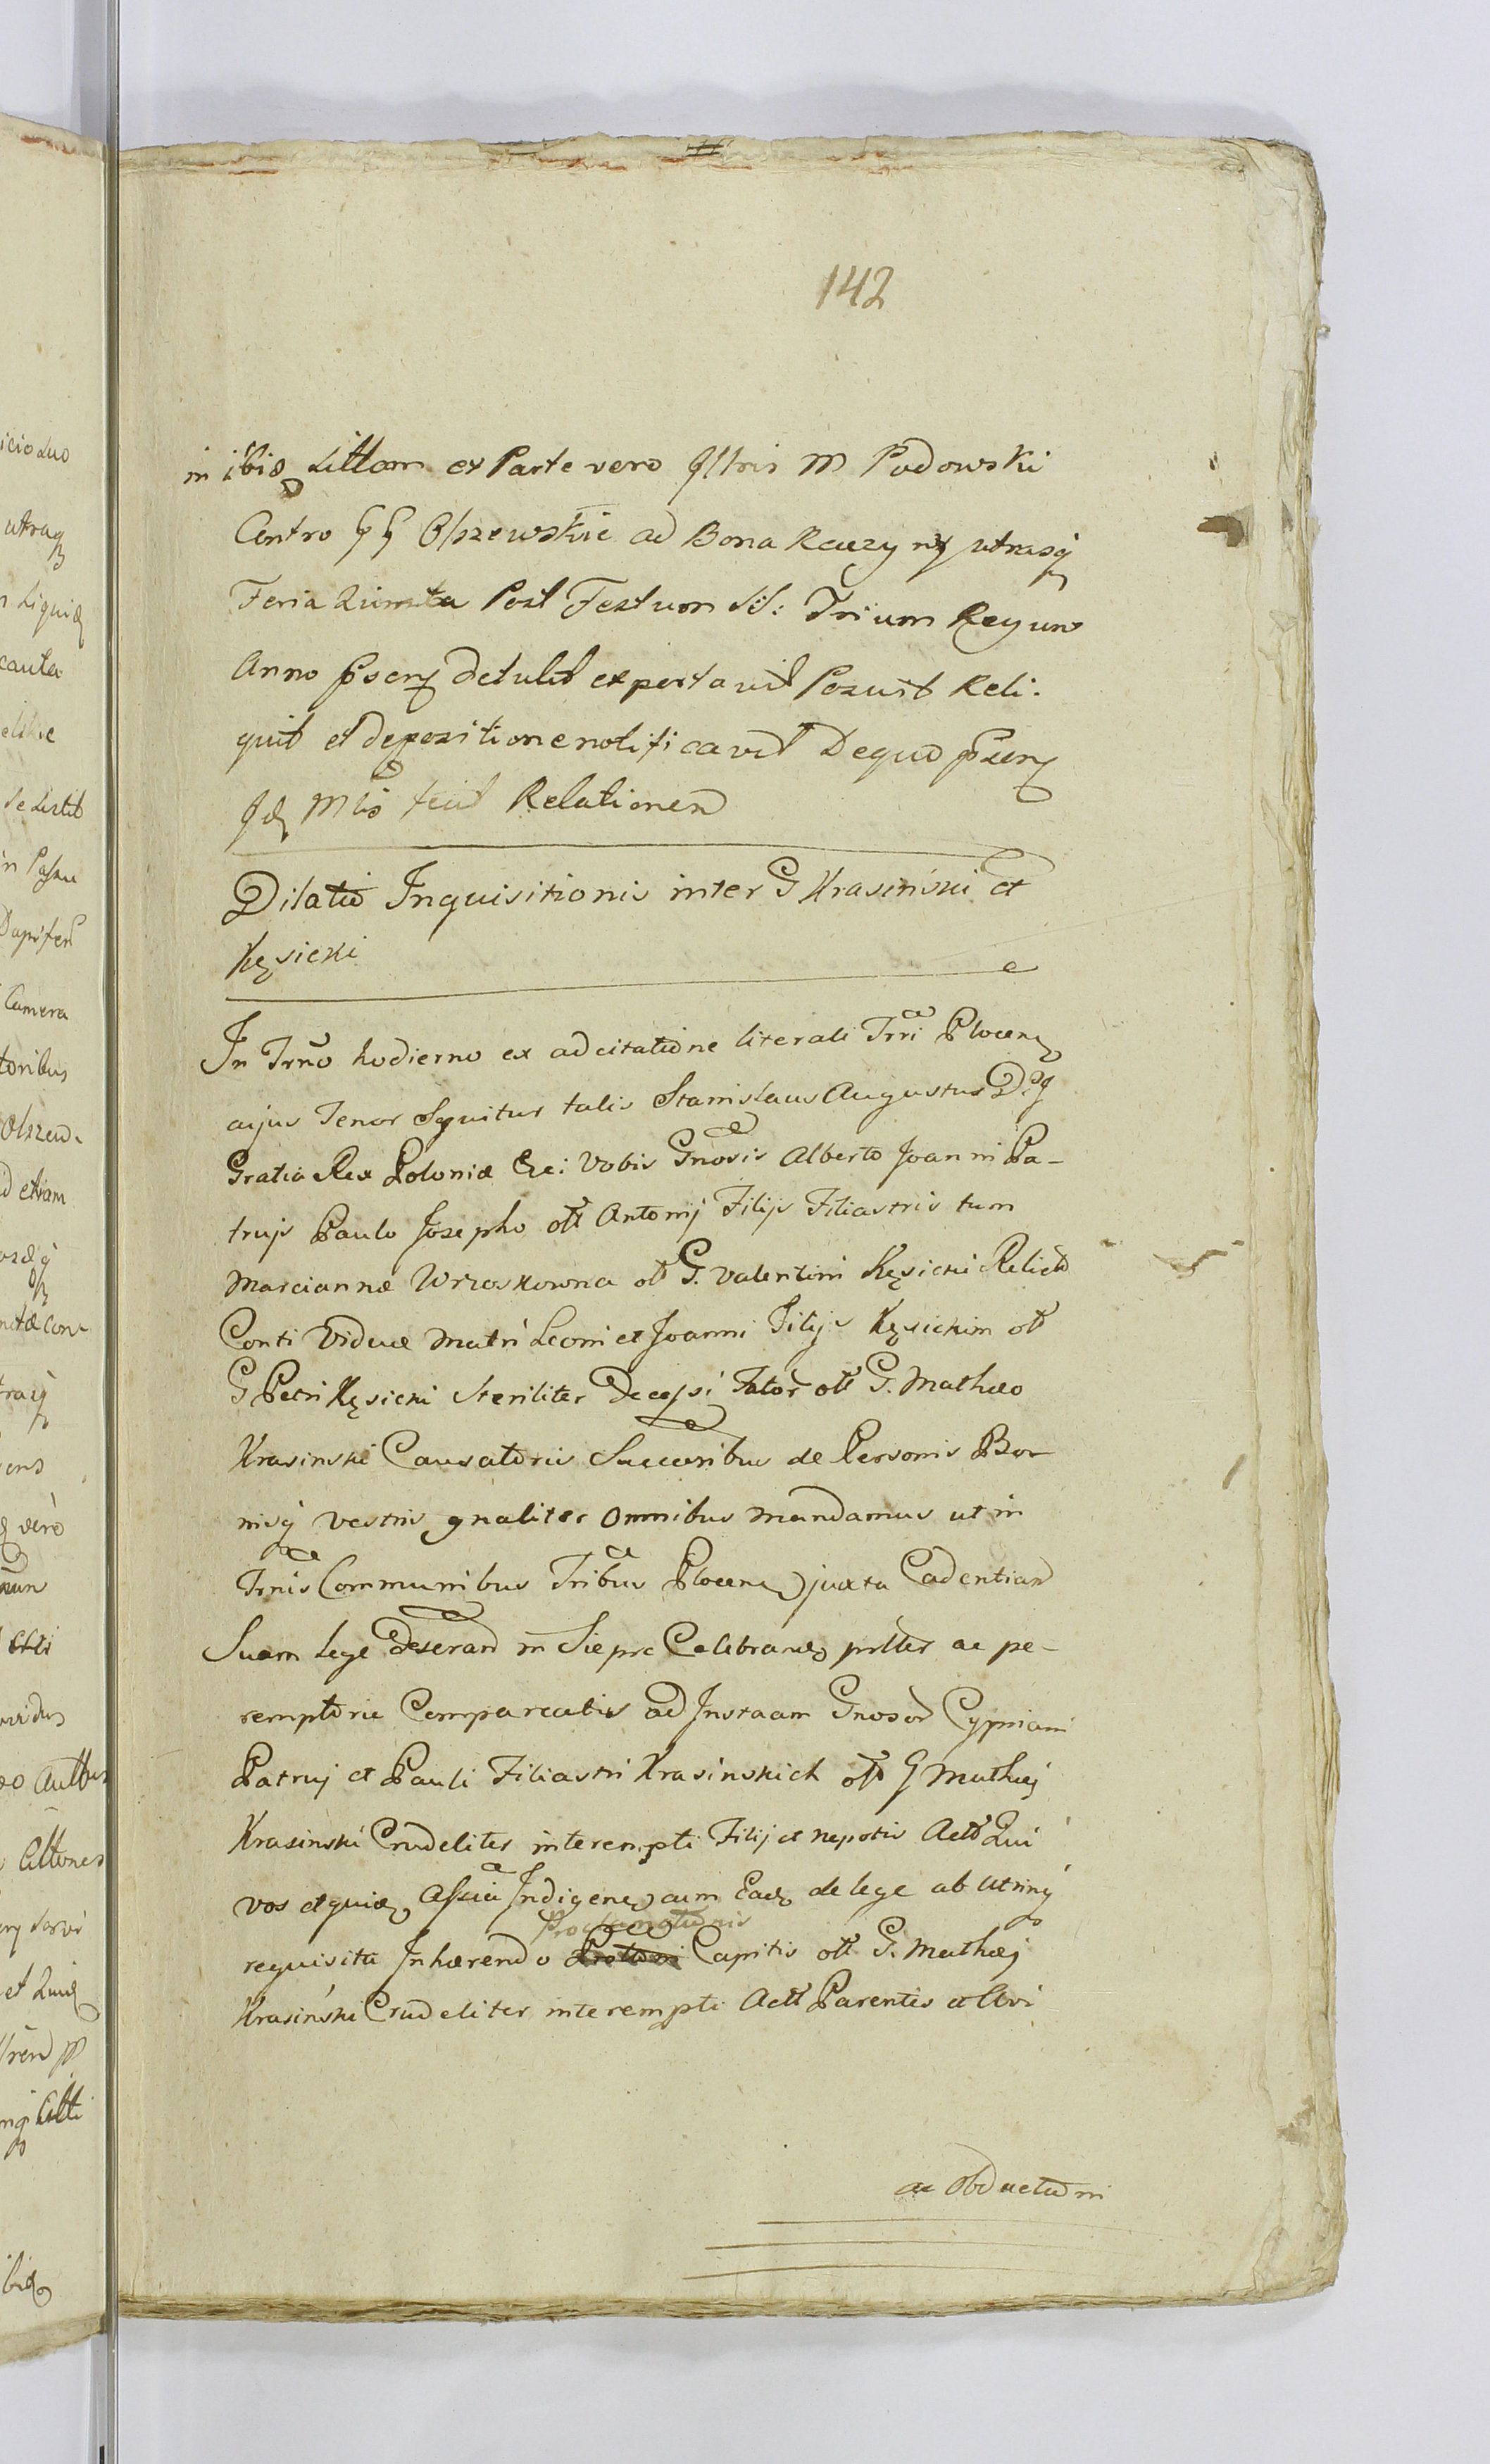 142
in ibiđ Littam ex Parte vero Illris M Podowski
Contro GG Olszewskie ad Bona Raczyny utrasq
Feria Quinta Post Festum SS: Trium Regum
Anno pseng Detulit exportavit Posuit Reli-
quit et depositione notificavit De quo pseng
Id Mlis fecit Relationem
Dilatio Inquisitionis inter G Krasinski et
Kęsicki
In Trno hodierno ex adcitatione literali Trri Plocen
cujus Tenor Sequitur talis Stanislaus Augustus D.G
Gratia Rex Poloniæ &ei Vobis Gnosis Alberto Joanni Pa-
truis Paulo Josepho olt Antonij Filijs Filiastris tum
Mariannæ Wrzoskowna olt G. Valentini Kęsicki Relictæ
Conti Viduæ Matri Leoni et Joanni Filijs Kęsickim olt
G Petri Kęsicki Steriliter Decessi Fator olt G. Mathæo
Krasinski Causatoris Succoribus de Personis Bo-
nisq vestris gnaliter Omnibus mandamus ut in
Trnis Communibus Tribus Plocen juxta Cadentiam
Suam lege deseran in Sieprc Celebrand prlter ac pe-
remptorie Compareatis ad Instaam Gnosor Cypriani
Patrui et Pauli Filiastri Krasinskich olt G Mathæj
Krasinski Crudeliter interempti Filij et nepotis Actt Qui
vos et quid Assia Indigen cum Ead de lege ab utrinq
Proclamationis
requisita Inhærendo Capitis olt G. Mathæj
Krasiński Crudeliter interempti Actt Parentis et Avi
ac Obductioni